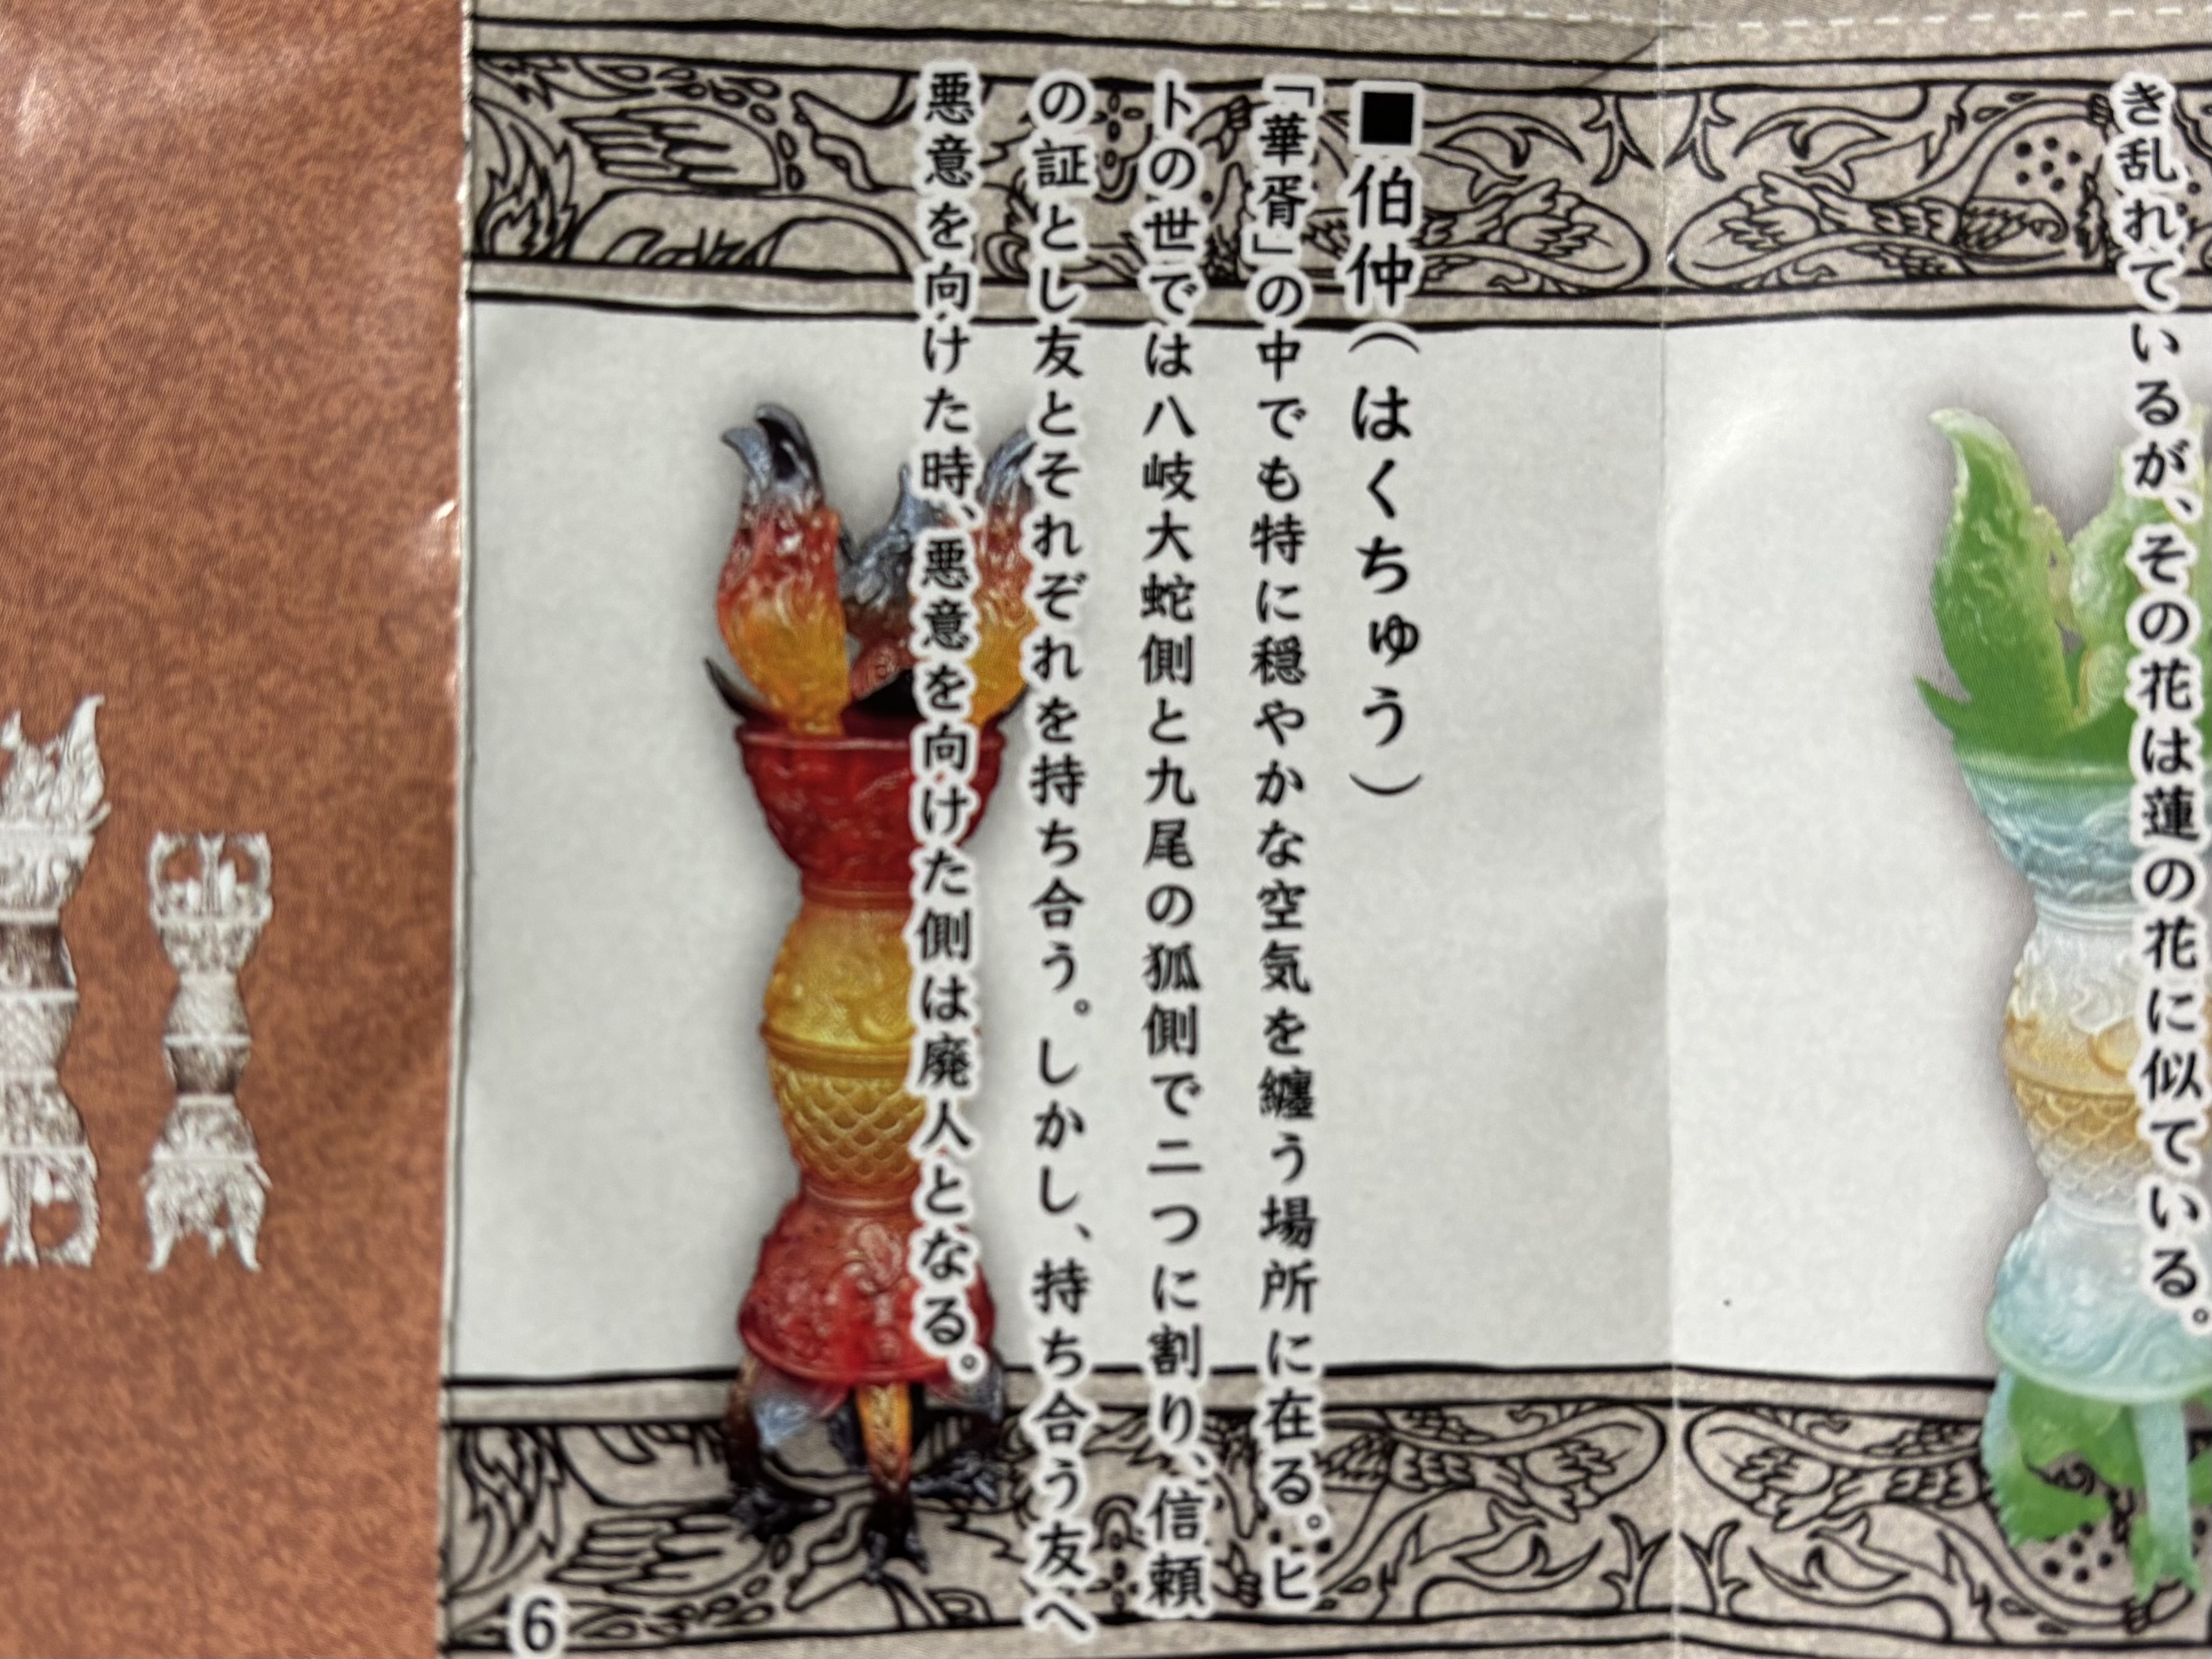 き乱れているが、その花は蓮の花に似ている。
■伯仲（はくちゅう）
「華胥」の中でも特に穏やかな空気を纏う場所に在る。ヒ
トの世では八岐大蛇側と九尾の狐側で二つに割り、信頼
の証とし友とそれぞれを持ち合う。しかし、持ち合う友へ
悪意を向けた時、悪意を向けた側は廃人となる。
6